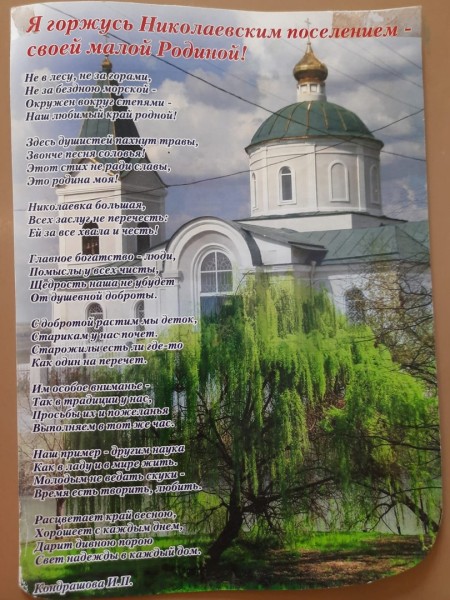 Я горжусь Николаевским поселением -
своей малой Родиной!
Не в лесу, не за горами,
Не за бездною морской -
Окружен вокруг степями -
Наш любимый край родной!
Здесь душистей пахнут травы,
Звонче песня соловья!
Этот стих не ради славы,
Это родина моя!
Николаевка большая,
Всех заслуг не перечесть:
Ей за все хвала и честь!
Главное богатство - люди,
Помыслы у всех чисты,
Щедрость наша не убудет
От душевной доброты.
С добротой растим мы деток,
Старикам у нас почет.
Старожилы есть ли где-то
Как один на перечет.
Им особое вниманье -
Так в традиции у нас,
Просьбы их и пожеланья
Выполняем в тот же час.
Наш пример - другим наука
Как в ладу и в мире жить.
Молодым не ведать скуки -
Время есть творить, любить.
Расцветает край весною,
Хорошеет с каждым днем,
Дарит дивною порою
Свет надежды в каждый дом.
Кондрашова И.П.